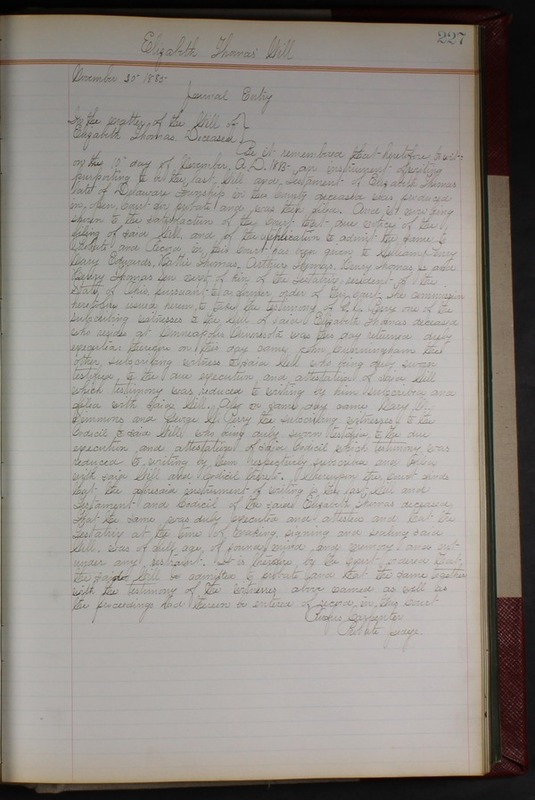 227
Elizabeth Thomas Will
November 30 1885
Journal Entry
In the matter of the Will of
Elizabeth Thomas. Deceased
Be it remembered that heretofore, to wit:
on the day of November, A.D. 1885 an instrument of writing
purporting to be the last Will and Testament of Elizabeth Thomas
late of Delaware Township in this County deceased was produced
in open Court for probate and was then filed. And it now being
shown to the satisfaction of the Court that due notice of the
filing of said Will, and of the application to admit the same to
Probate and Record in this Court has been given to
Mary Edwards, Hattie Thomas, Arthur Thomas, Henry Thomas
Thomas next of kin of the testatrix resident of the
State of Ohio pursuant to a former order of this Court, the commission
heretofore issued herein to take the testimony of one of the
subscribing witnesses to the Will of said Elizabeth Thomas deceased
who resides at Minneapolis Minnesota was this day returned duly
executed; thereupon on this day came John Cunningham the
other subscribing witness to said Will who being duly sworn
testified to the due execution and attestation of said Will
which testimony was reduced to writing by him subscribed and
filed with said Will. Also on same day came Mary
Simmons and George the subscribing witnesses to the
Codicil to said Will who being duly sworn testified to the due
execution and attestation of said Codicil which testimony was
reduced to writing by them respectively subscribed and filed
with said Will and Codicil herein. Whereupon the Court finds
that the aforesaid instrument of writing is the last Will and
Testament and Codicil of the said Elizabeth Thomas deceased
that the same was duly executed and attested and that the
testatrix at the time of making, signing and sealing said
Will was of full age, of sound mind and memory and not
under any restraint. It is therefore by the Court ordered that
the said Will be admitted to probate and that the same together
with the testimony of the witnesses above named as well as
the proceedings had therein be entered of record in this Court
Carpenter
Probate Judge